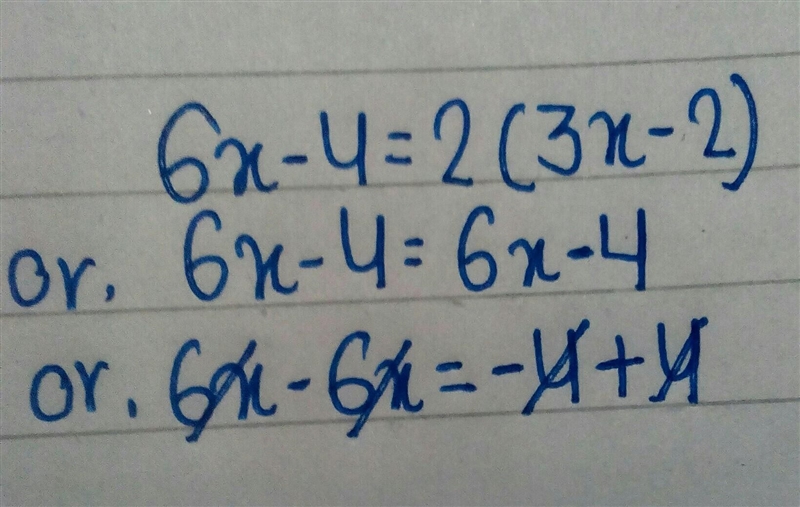 6x-4=2(3x-2)
or. 6x-4=6x-4
or. 6x-6x=-4+4